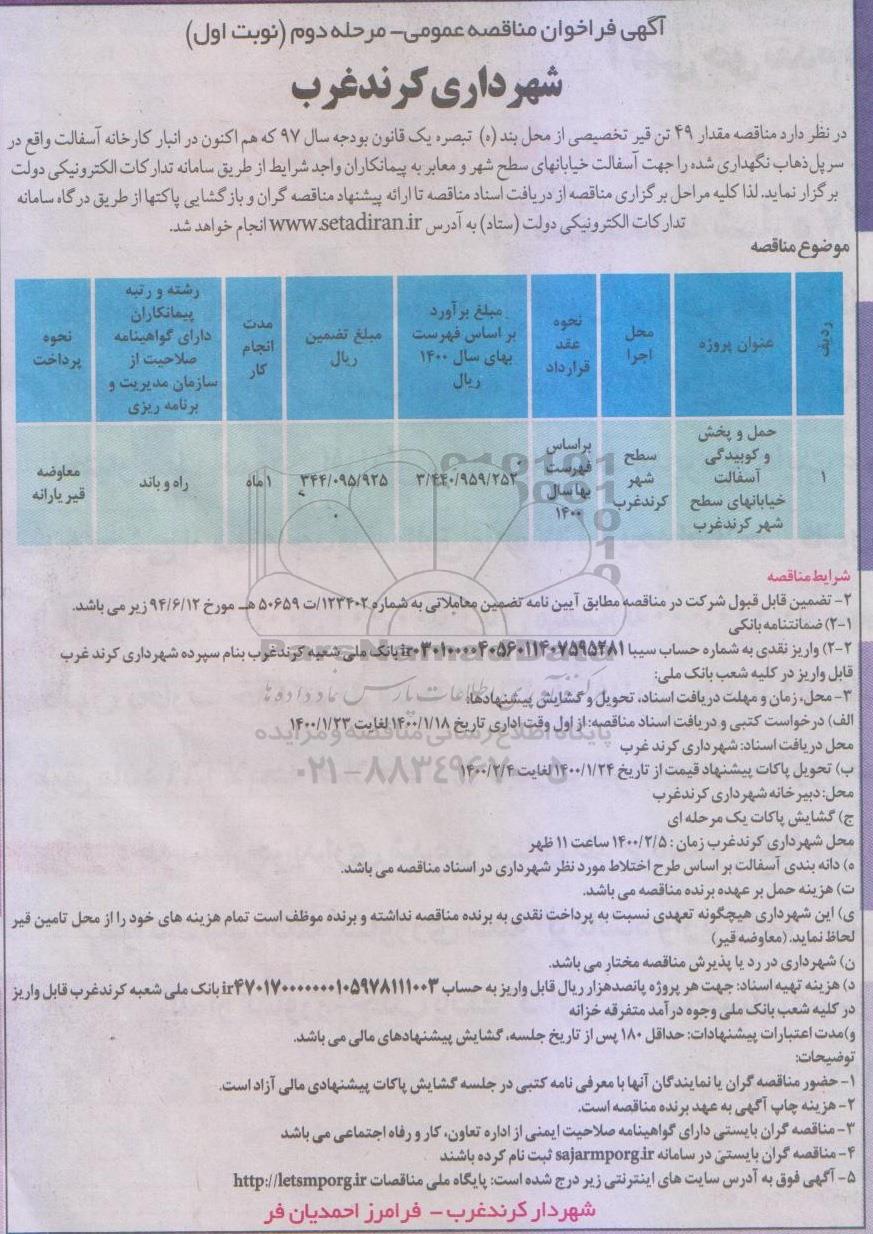 آگهی فراخوان مناقصه عمومی- مرحله دوم (نوبت اول)
شهرداری کرندغرب
در نظر دارد مناقصه مقدار ۴۹ تن قیر تخصیصی از محل بند (ه) تبصره یک قانون بودجه سال ۹۷ که هم اکنون در انبار کارخانه آسفالت واقع در
سرپل‌ذهاب نگهداری شده را جهت آسفالت خیابانهای سطح شهر و معابر به پیمانکاران واجد شرایط از طریق سامانه تدارکات الکترونیکی دولت
برگزار نماید. لذا کلیه مراحل برگزاری مناقصه از دریافت اسناد مناقصه تا ارائه پیشنهاد مناقصه گران و بازگشایی پاکتها از طریق درگاه سامانه
تدارکات الکترونیکی دولت (ستاد) به آدرس www.setadiran.ir انجام خواهد شد.
موضوع مناقصه
ردیف
عنوان پروژه
محل
اجرا
نحوه
عقد
قرارداد
مبلغ برآورد
بر اساس فهرست
بهای سال ۱۴۰۰
ریال
مبلغ تضمین
ریال
مدت
انجام
کار
رشته و رتبه
پیمانکاران
دارای گواهینامه
صلاحیت از
سازمان مدیریت و
برنامه ریزی
نحوه
پرداخت
۱
حمل و پخش
و کوبیدگی
آسفالت
خیابانهای سطح
شهر کرندغرب
سطح
شهر
کرندغرب
براساس
فهرست
بهاسال
۱۴۰۰
۳/۴۴۰/۹۵۹/۲۵۲
۳۴۴/۰۹۵/۹۲۵
۱ ماه
راه و باند
معاوضه
قیر یارانه
شرایط مناقصه
۲- تضمین قابل قبول شرکت در مناقصه مطابق آیین نامه تضمین معاملاتی به شماره ۱۲۳۴۰۲/ت ۵۰۶۵۹ هـ مورخ ۹۴/۶/۱۲ زیر می باشد.
۲-۱) ضمانتنامه بانکی
۲-۲) واریز نقدی به شماره حساب سیبا ir۰۳۰۱۰۰۰۰۴۰۵۶۰۱۱۴۰۷۵۹۵۲۸۱ بانک ملی شعبه کرندغرب بنام سپرده شهرداری کرند غرب
قابل واریز در کلیه شعب بانک ملی:
۳- محل، زمان و مهلت دریافت اسناد، تحویل و گشایش پیشنهادها:
الف) درخواست کتبی و دریافت اسناد مناقصه: از اول وقت اداری تاریخ ۱۴۰۰/۱/۱۸ لغایت ۱۴۰۰/۱/۲۳
محل دریافت اسناد: شهرداری کرند غرب
ب) تحویل پاکات پیشنهاد قیمت از تاریخ ۱۴۰۰/۱/۲۴ لغایت ۱۴۰۰/۲/۴
محل: دبیرخانه شهرداری کرندغرب
ج) گشایش پاکات یک مرحله ای
محل شهرداری کرندغرب زمان : ۱۴۰۰/۲/۵ ساعت ۱۱ ظهر
ه) دانه بندی آسفالت بر اساس طرح اختلاط مورد نظر شهرداری در اسناد مناقصه می باشد.
ت) هزینه حمل بر عهده برنده مناقصه می باشد.
ی) این شهرداری هیچگونه تعهدی نسبت به پرداخت نقدی به برنده مناقصه نداشته و برنده موظف است تمام هزینه های خود را از محل تامین قیر
لحاظ نماید. (معاوضه قیر)
ن) شهرداری در رد یا پذیرش مناقصه مختار می باشد.
د) هزینه تهیه اسناد: جهت هر پروژه پانصدهزار ریال قابل واریز به حساب ir۴۷۰۱۷۰۰۰۰۰۰۰۱۰۵۹۷۸۱۱۱۰۰۳ بانک ملی شعبه کرندغرب قابل واریز
در کلیه شعب بانک ملی وجوه درآمد متفرقه خزانه
و)مدت اعتبارات پیشنهادات: حداقل ۱۸۰ پس از تاریخ جلسه، گشایش پیشنهادهای مالی می باشد.
توضیحات:
۱- حضور مناقصه گران یا نمایندگان آنها با معرفی نامه کتبی در جلسه گشایش پاکات پیشنهادی مالی آزاد است.
۲- هزینه چاپ آگهی به عهد برنده مناقصه است.
۳- مناقصه گران بایستی دارای گواهینامه صلاحیت ایمنی از اداره تعاون، کار و رفاه اجتماعی می باشد
۴- مناقصه گران بایستی در سامانه sajarmporg.ir ثبت نام کرده باشند
۵- آگهی فوق به آدرس سایت های اینترنتی زیر درج شده است: پایگاه ملی مناقصات http://letsmporg.ir
شهردار کرندغرب - فرامرز احمدیان فر
ParsNamadData
پایگاه اطلاع رسانی مناقصه و مزایده
۰۲۱-۸۸۳۴۹۶۷۰-۵